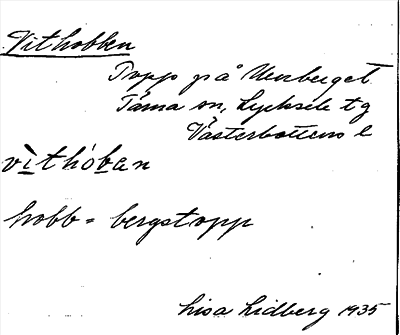 Vithobben
Topp på Umberget
Tärna sn, Lycksele tg
Västerbottens l
vìthób̲a̲n
hobb = bergstopp
Lisa Lidberg 1935